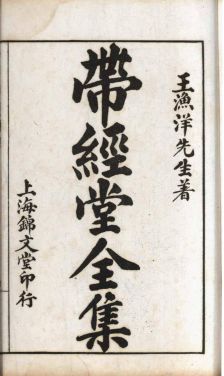 王漁洋先生著
帶經堂全集
上海錦文堂印行